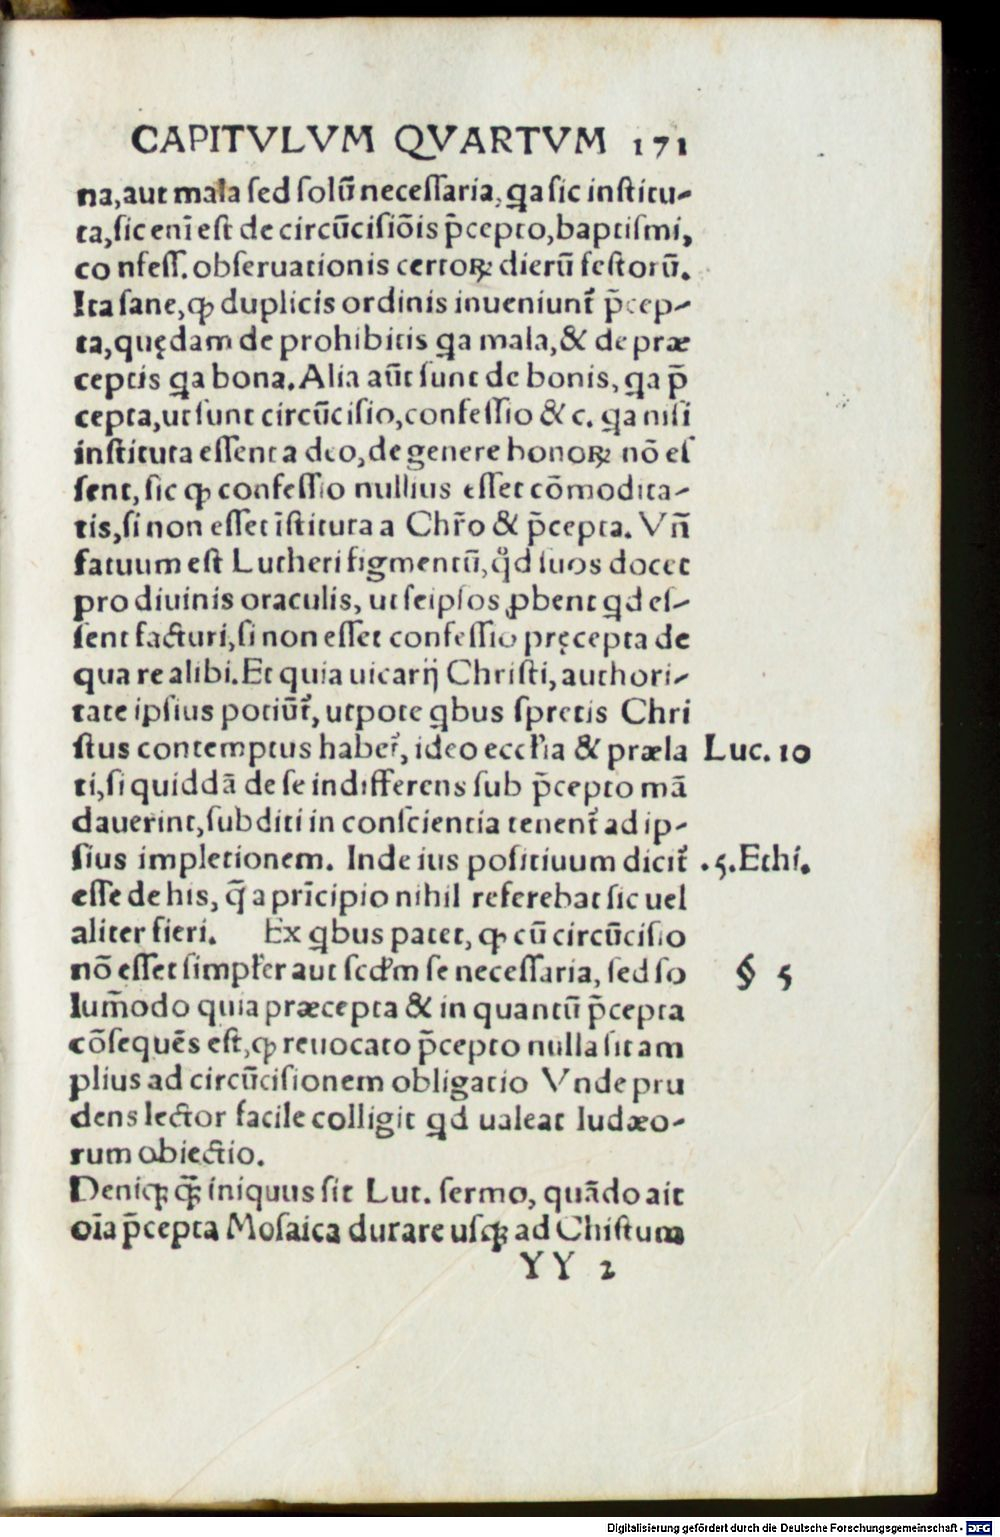 CAPITVLVM QVARTVM 171
na,aut mala sed solū necessaria,qa sic institu-
ta,sic enī est de circūcisiōis p̄cepto,baptismi,
confess.obseruationis certoꝝ dierū festorū.
Ita sane,ꝙ duplicis ordinis inueniunt᷑ p̄cep-
ta,quędam de prohibitis qa mala,& de præ
ceptis qa bona.Alia aūt sunt de bonis,qa p̄
cepta,ut sunt circūcisio,confessio &c. qa nisi
instituta essent a deo,de genere bonoꝝ nō es
sent,sic ꝙ confessio nullius esset cōmodita-
tis,si non esset īstituta a Chr̄o & p̄cepta. Vñ
fatuum est Lutheri figmentū,qd̉ suos docet
pro diuinis oraculis, ut seipsos ꝓbent qd es-
sent facturi,si non esset confessio pręcepta de
qua re alibi.Et quia uicarij Christi,authori-
tate ipsius potiūt᷑,utpote qbus spretis Chri
stus contemptus habet᷑,ideo eccl̄ia & præla Luc. 10
ti,si quiddā de se indifferens sub p̄cepto mā
dauerint,subditi in conscientia tenent᷑ ad ip-
sius impletionem. Inde ius positiuum dicit᷑ .5.Ethi.
esse de his, q̄ a prīcipio nihil referebat sic uel
aliter fieri. Ex qbus patet, ꝙ cū circūcisio
nō esset simpl̄r aut scd̄m se necessaria, sed so § 5
lum̄odo quia præcepta & in quantū p̄cepta
cōsequēs est,ꝙ reuocato p̄cepto nulla sit am
plius ad circūcisionem obligatio Vnde pru
dens lector facile colligit qd ualeat Iudæo-
rum obiectio.
Deniqꝫ qꝫ̄ iniquus sit Lut. sermo, quādo ait
oīa p̄cepta Mosaica durare usqꝫ ad Chistum
YY 2
Digitalisierung gefördert durch die Deutsche Forschungsgemeinschaft - DFG